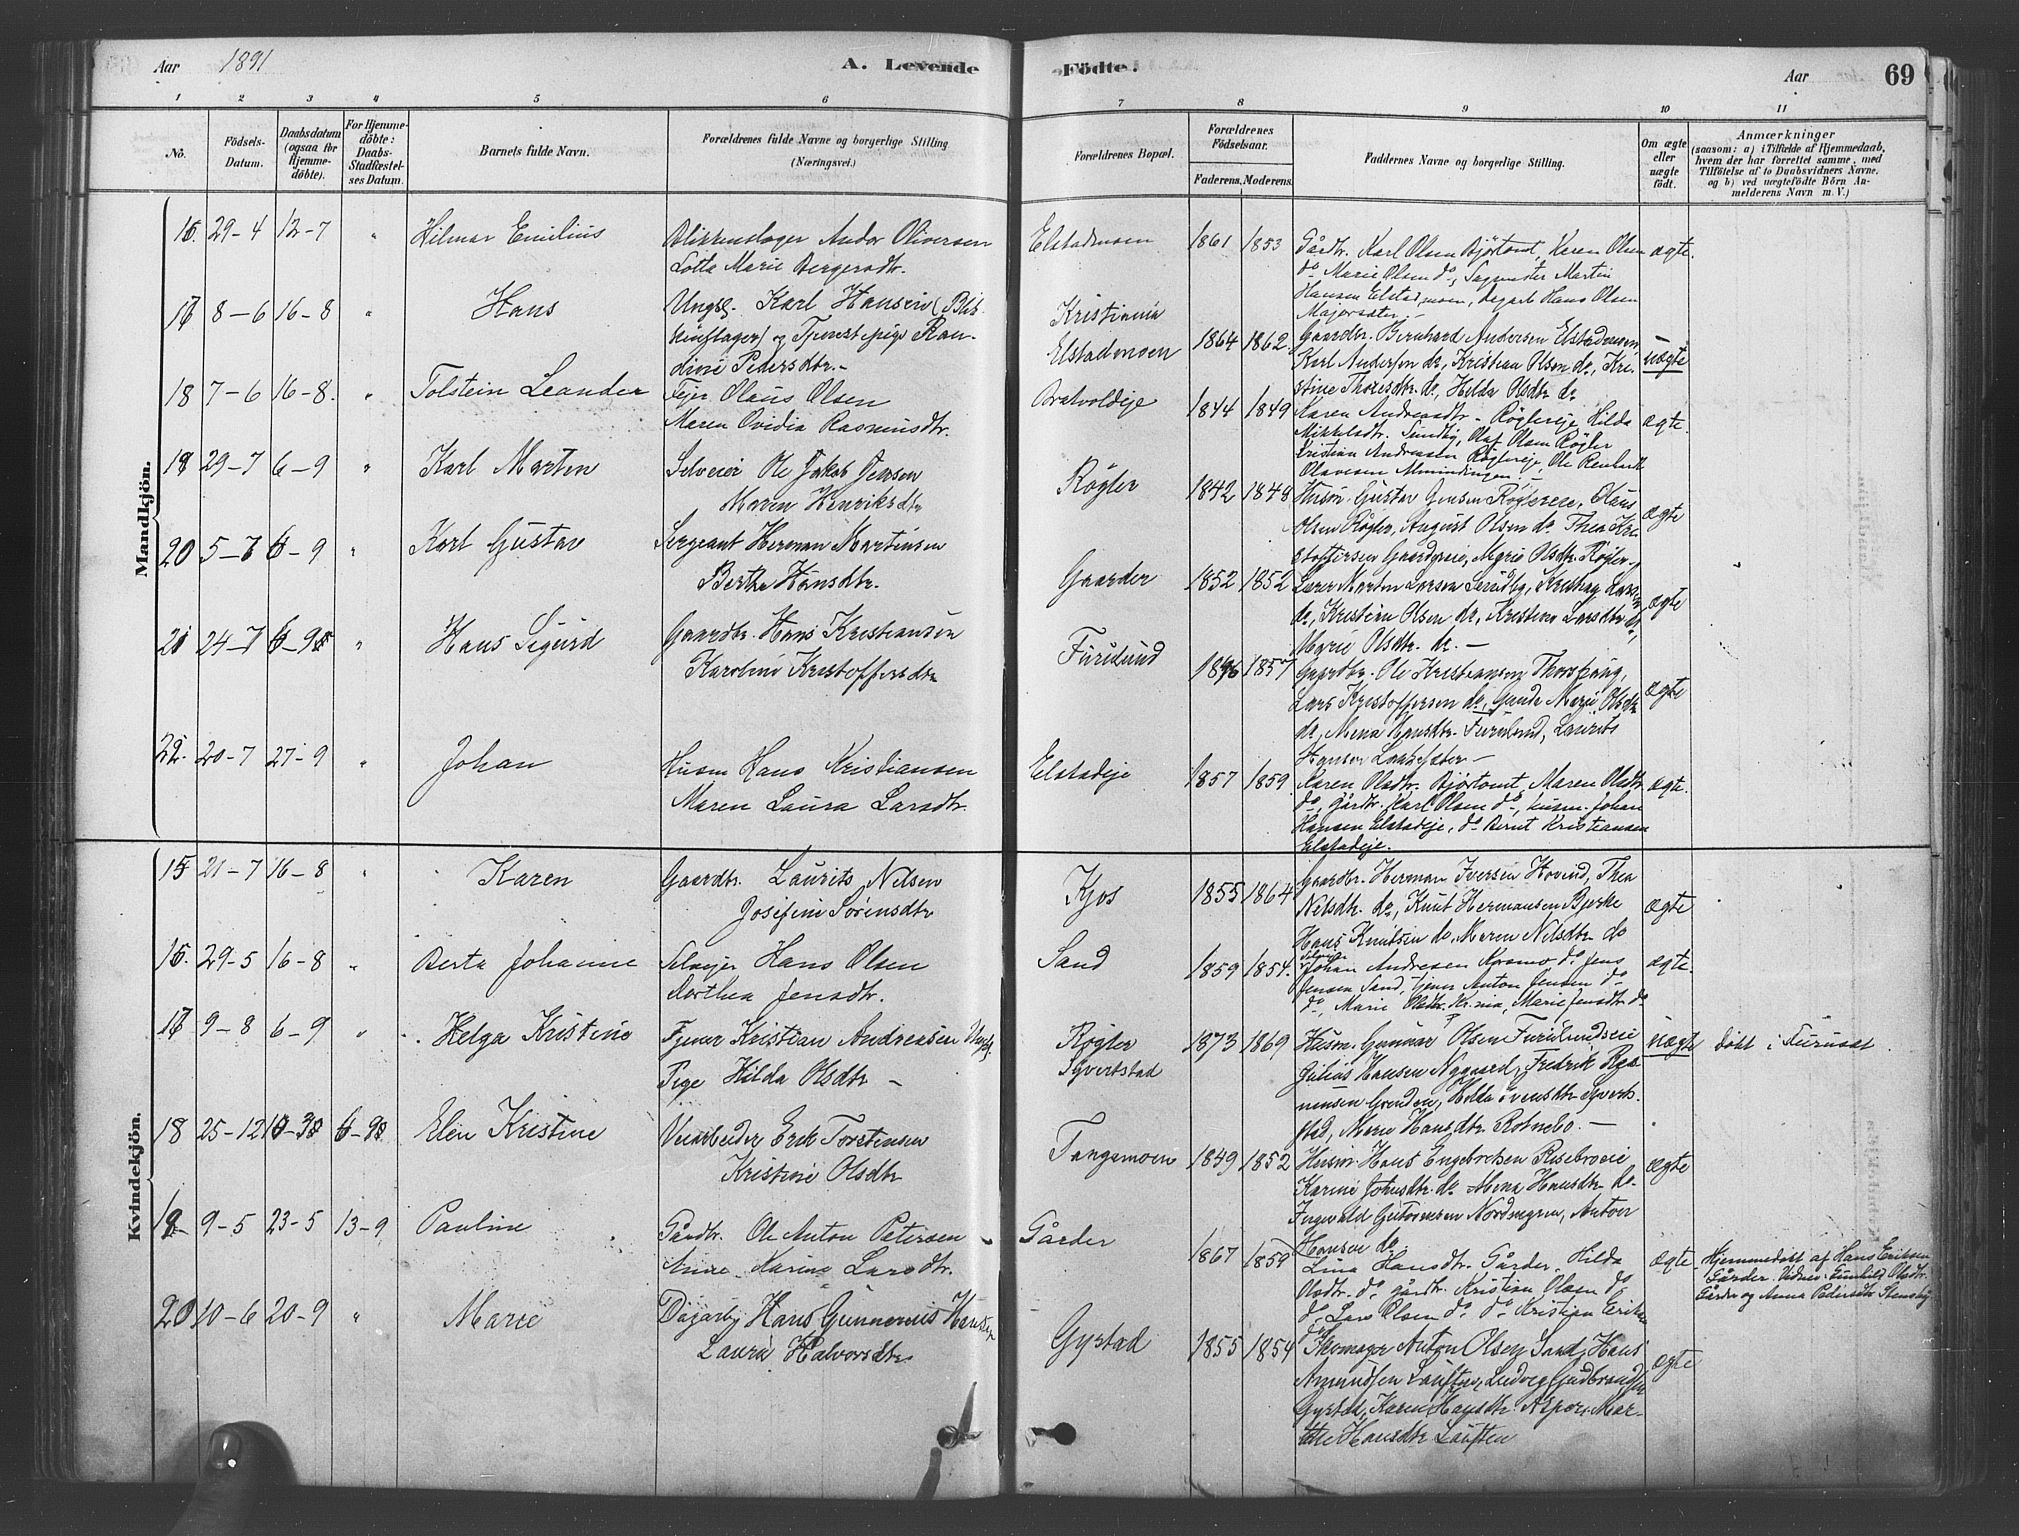 Aar 1891 A. Levende Födte. Aar 69
1 2 3 4 5 6 7 8 9 10 11
No.
Födsels-
Datum.
Daabsdatum
(ogsaa för
Hjemme-
döbte).
For Hjemme-
döbte:
Daabs-
Stadfæstel-
ses Datum.
Barnets fulde Navn.
Forældrenes fulde Navne og borgerlige Stilling
(Næringsvei.)
Forældrenes Bopæl.
Forældrenes
Födselsaar.
Faderens. Moderens.
Faddernes Navne og borgerlige Stilling.
Om ægte
eller
uægte
födt.
Anmærkninger
(saasom: a) i Tilfælde af Hjemmedaab,
hvem der har forrettet samme, med
Tilföielse af to Daabsvidners Navne,
og b) ved uægtefödte Börn An-
melderens Navn m. V.)
Mandkjön.
29-4 12-7 " Hilmar Emilius
Blikkenslager Andor Oliversen
Lotta Marie Bergersdtr.
Elstadmoen 1861 1853
Gårdbr. Karl Olsen Bjørtomt, Karen Olsen
do Marie Olsen do, Sagmester Martin
Hansen Elstadmoen, Dagarb Hans Olsen
Majorsæter.
ægte.
8-6 16-8 " Hans
Ungk. Karl Hansen (Blik-
kenslager) og Tjenestepige Ran-
dine Pedersdtr. -
Kristiania
Elstadmoen 1864 1862
Gaardbr. Bernhard Andersen Elstadmoen,
Karl Andersen do, Kristian Olsen do, Kri-
stine Thoresdtr. do, Hilda Olsdtr. do
uægte
18 7-6 16-8. " Tolstein Leander
Olaus Olsen
Maren Ovidia Rasmusdtr.
Bratvoldeje 1844 1849
Karen Andreasdtr. Røglereje, Hilda
Mikkelsdtr. Sundby, Olaf Olsen Røgler
Kristian Andreasen Røglereje, Ole Reinhardt
Olavesen Almindingen. -
ægte.
29-7 6-9 " Karl Martin
Selveier Ole Jakob Jensen
Maren Henriksdtr
Røgler 1842 1848
Husm. Gustav Jensen Røglereie, Olaus
Olsen Røgler, August Olsen do Thea Kri-
stoffersen Gaardereie, Marie Olsdtr. Røgler.
ægte
20 5-7 6-9 " Karl Gustav
Sergeant Herman Martinsen
Berthe Hansdtr.
Gaarder 1852 1852
Lærer Morten Larsen Sundby, Larsen
do, Kristian Olsen do, Kristine Larsdtr do,
Marie Olsdtr. do. -
ægte
24-7 " Hans Sigurd
Gaardbr. Hans Kristiansen
Karoline Kristoffersdtr
Furulund 1857
Gaardbr. Ole Kristiansen
Lars Kristoffersen do, Gunda Marie Olsdtr
do, Mina Hansdtr. Furulund, Laurits
Hansen
ægte
22. 20-7 27-9 " Johan
Husm Hans Kristiansen
Maren Laura Larsdtr.
Elstadeje 1857 1859.
Karen Olsdtr. Bjørtomt, Maren Olsdtr
do, gårdbr. Karl Olsen do, husm. Johan
Hansen Elstadeje, do Bernt Kristiansen
Elstadeje.
ægte.
Kvindekjön.
15 21-7 16-8 " Karen
Gaardbr. Laurits Nilsen
Josefine Sørensdtr
Kjos 1855 1864
Gaardbr. Herman Iversen Hovind, Thea
Nilsdtr. do, Knut Hermansen Bjerke
Hans Knutsen do, Maren Nilsdtr. do
ægte
29-5 16-8 " Berta Johanne
Selvejer Hans Olsen
Dorthea Jensdtr.
Sand 1859 1854.
Selvejer
Johan Andresen Koramo, do Jens
Jensen Sand, Tjener Anton Jensen do
do, Marie Olsdtr. Kr.nia, Marie Jensdtr. do
ægte.
9-8 6-9 " Helga Kristine
Tjener Kristian Andreasen Ungk.
Pige Hilda Olsdtr -
Røgler
Syverstad 1873 1869
Husm. Gunnar Olsen Furulundseie
Julius Hansen Nygaard, Fredrik Ras-
mussen Grenden, Hilda Evensdtr Syvert-
stad, Marie Hansdtr. Rotnebo. -
uægte døbt i Furuset.
18 25-12 Elen Kristine
Veiarbeider Erik Torstensen
Kristine Olsdtr
Tangsmoen 1849 1852
Husm. Hans Engebretsen Risebroeie
Karine Johnsdtr. do Mina Hansdtr do-
Ingevald Guttormsen Nordengen, Anton
Hansen do
ægte
9-5 23-5 13-9 Pauline
Gårdbr. Ole Anton Petersen
Anne Karine Larsdtr.
Gårder 1867 1859
Lina Hansdtr. Gårder, Hilda
Olsdtr. do, gårdbr. Kristian Olsen do
do, Lars Olsen do, do Kristian Eriksen
do
ægte
Hjemmedøbt af Hans Eriksen
Gårder. Vidner: Gunhild Olsdtr.
Gårder og Anna Pedersdtr Stensby
20 10-6 20-9 " Marie
Dagarb Hans Gunnerius Hansen
Laura Halvorsdtr
Gystad 1855 1854
Skomager Anton Olsen Sand, Hans
Amundsen Ludvig Gudbrandsen
Gystad, Karen Hansdtr. Mar-
the Hansdtr
ægte